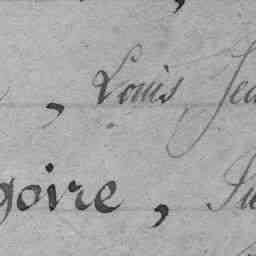 , Louis Jea
goire,